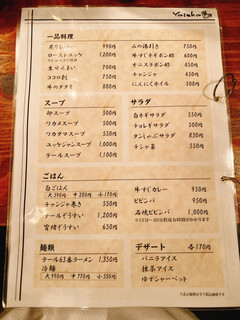 一品料理
炙りレバー 990円
ローストユッケ
生せんまい 700円
ココロ刺し 750円
牛のタタキ 880円
山の漬わさ 750円
牛すじキモポン酢 600円
オニスラポン酢 450円
チャンジャ 450円
にんにくホイル 500円
スープ
卵スープ 300円
ワカメスープ 300円
ワカタマスープ 550円
ユッケジャンスープ 850円
テールスープ 1,100円
サラダ
白ネギサラダ 550円
チョレギサラダ 500円
タンしゃぶサラダ 850円
チシャ菜 350円
ごはん
白ごはん
大 390円 中 290円 小 170円
チャンジャ巻き 550円
テールぞうすい 1,200円
宮崎ぞうすい 650円
牛すじカレー 950円
ビビンバ 950円
石焼ビビンバ 1,000円
麺類
テール63番ラーメン 1,350円
冷麺
大 990円 中 770円 小 550円
デザート 各170円
バニラアイス
抹茶アイス
ゆずシャーベット